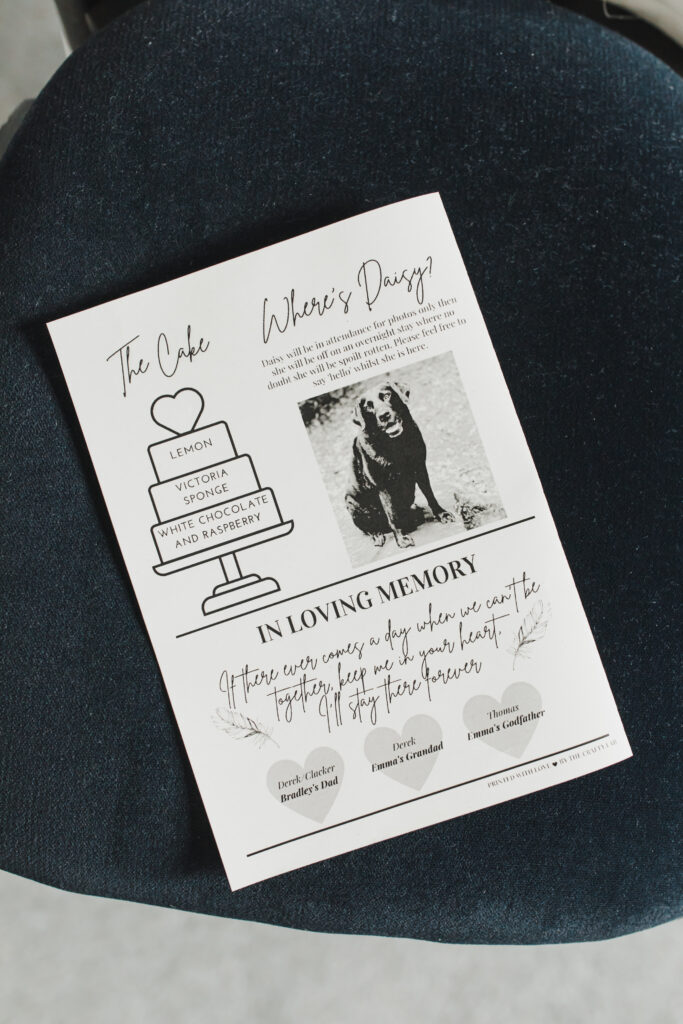 The Cake
LEMON
VICTORIA
SPONGE
WHITE CHOCOLATE
AND RASPBERRY
Where's Daisy?
Daisy will be in attendance for photos only then
she will be off on an overnight stay where no
doubt she will be spoilt rotten. Please feel free to
say 'hello' whilst she is here.
IN LOVING MEMORY
If there ever comes a day when we can't be
together, keep me in your heart,
I'll stay there forever
Derek/Clacker
Bradley's Dad
Derek
Emma's Grandad
Thomas
Emma's Godfather
PRINTED WITH LOVE ♥ BY THE CRAFTY LAB